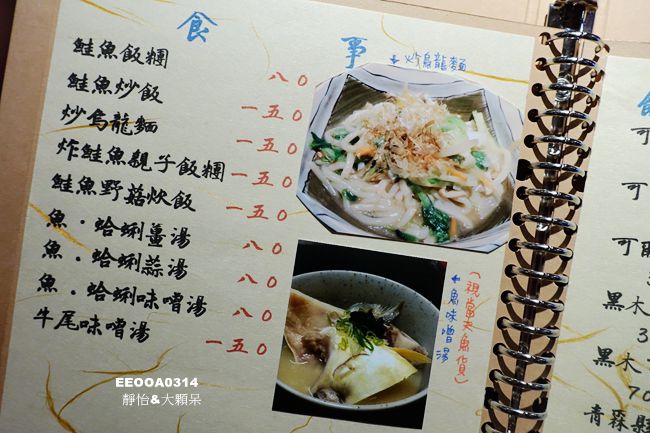 食事
鮭魚飯糰 八〇
鮭魚炒飯 一五〇
炒烏龍麵 一五〇
炸鮭魚親子飯糰 一五〇
鮭魚野菇炊飯 一五〇
魚·蛤蜊薑湯 八〇
魚·蛤蜊蒜湯 八〇
魚·蛤蜊味噌湯 八〇
牛尾味噌湯 一五〇
←炒烏龍麵
(視當天魚貨)
←魚味噌湯
EEOOA0314
靜怡&大顆呆
可
可
可
3
黑木
3
黑木
70
青森縣